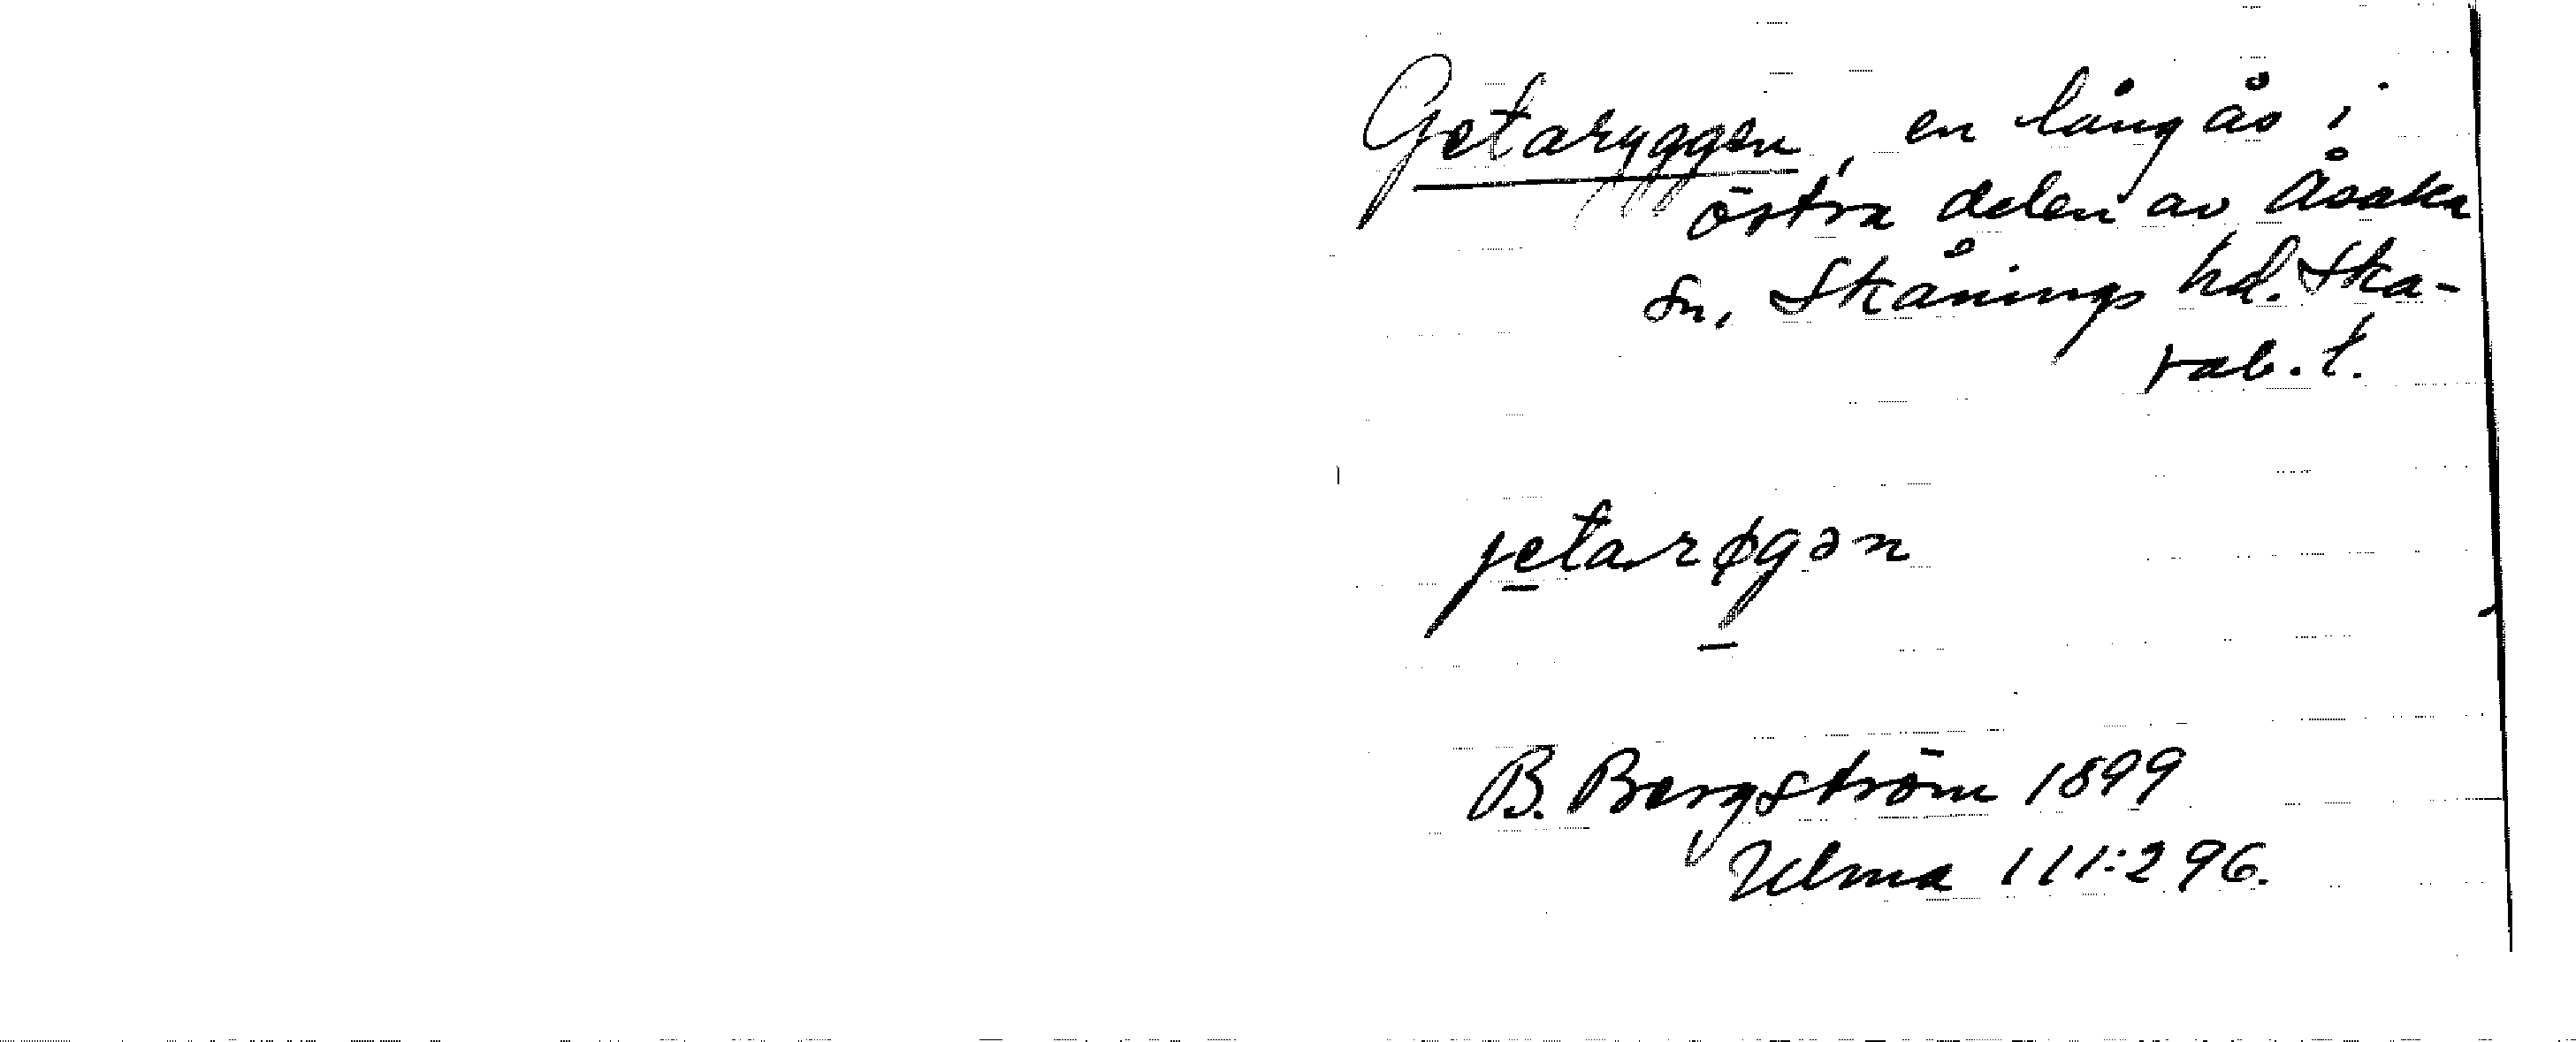 Getaryggen, en lång ås i
östra delen av Åsaka
sn, Skånings hd. Ska-
rab. l.
jetarøgən
B. Bergström 1899
Ulma 111:296.